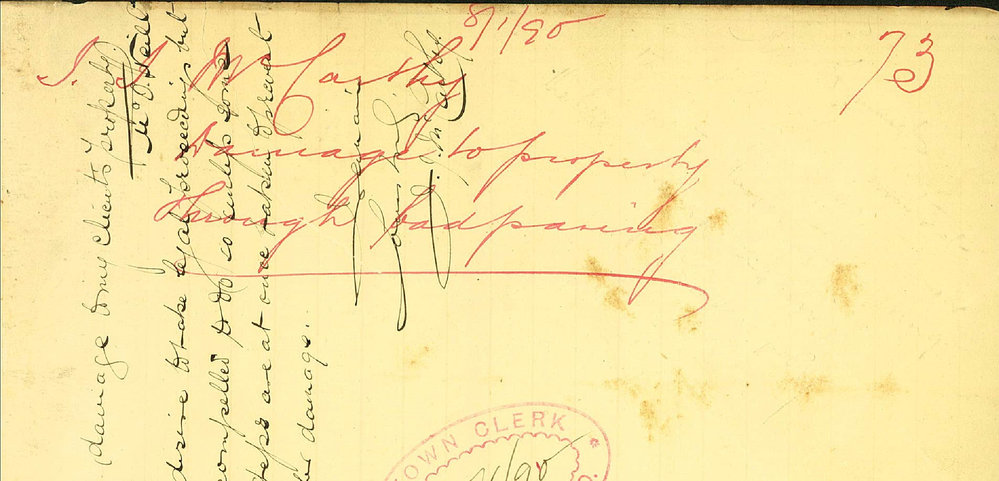 8/1/95
73
McCarthy
Damage to property
Through bad paving
damage to my clients property
Mr O'Neill
desire to take legal proceedings but
compelled to do so unless some
steps are at once taken to prevent
damage.
remain
Yours
TOWN CLERK
/95